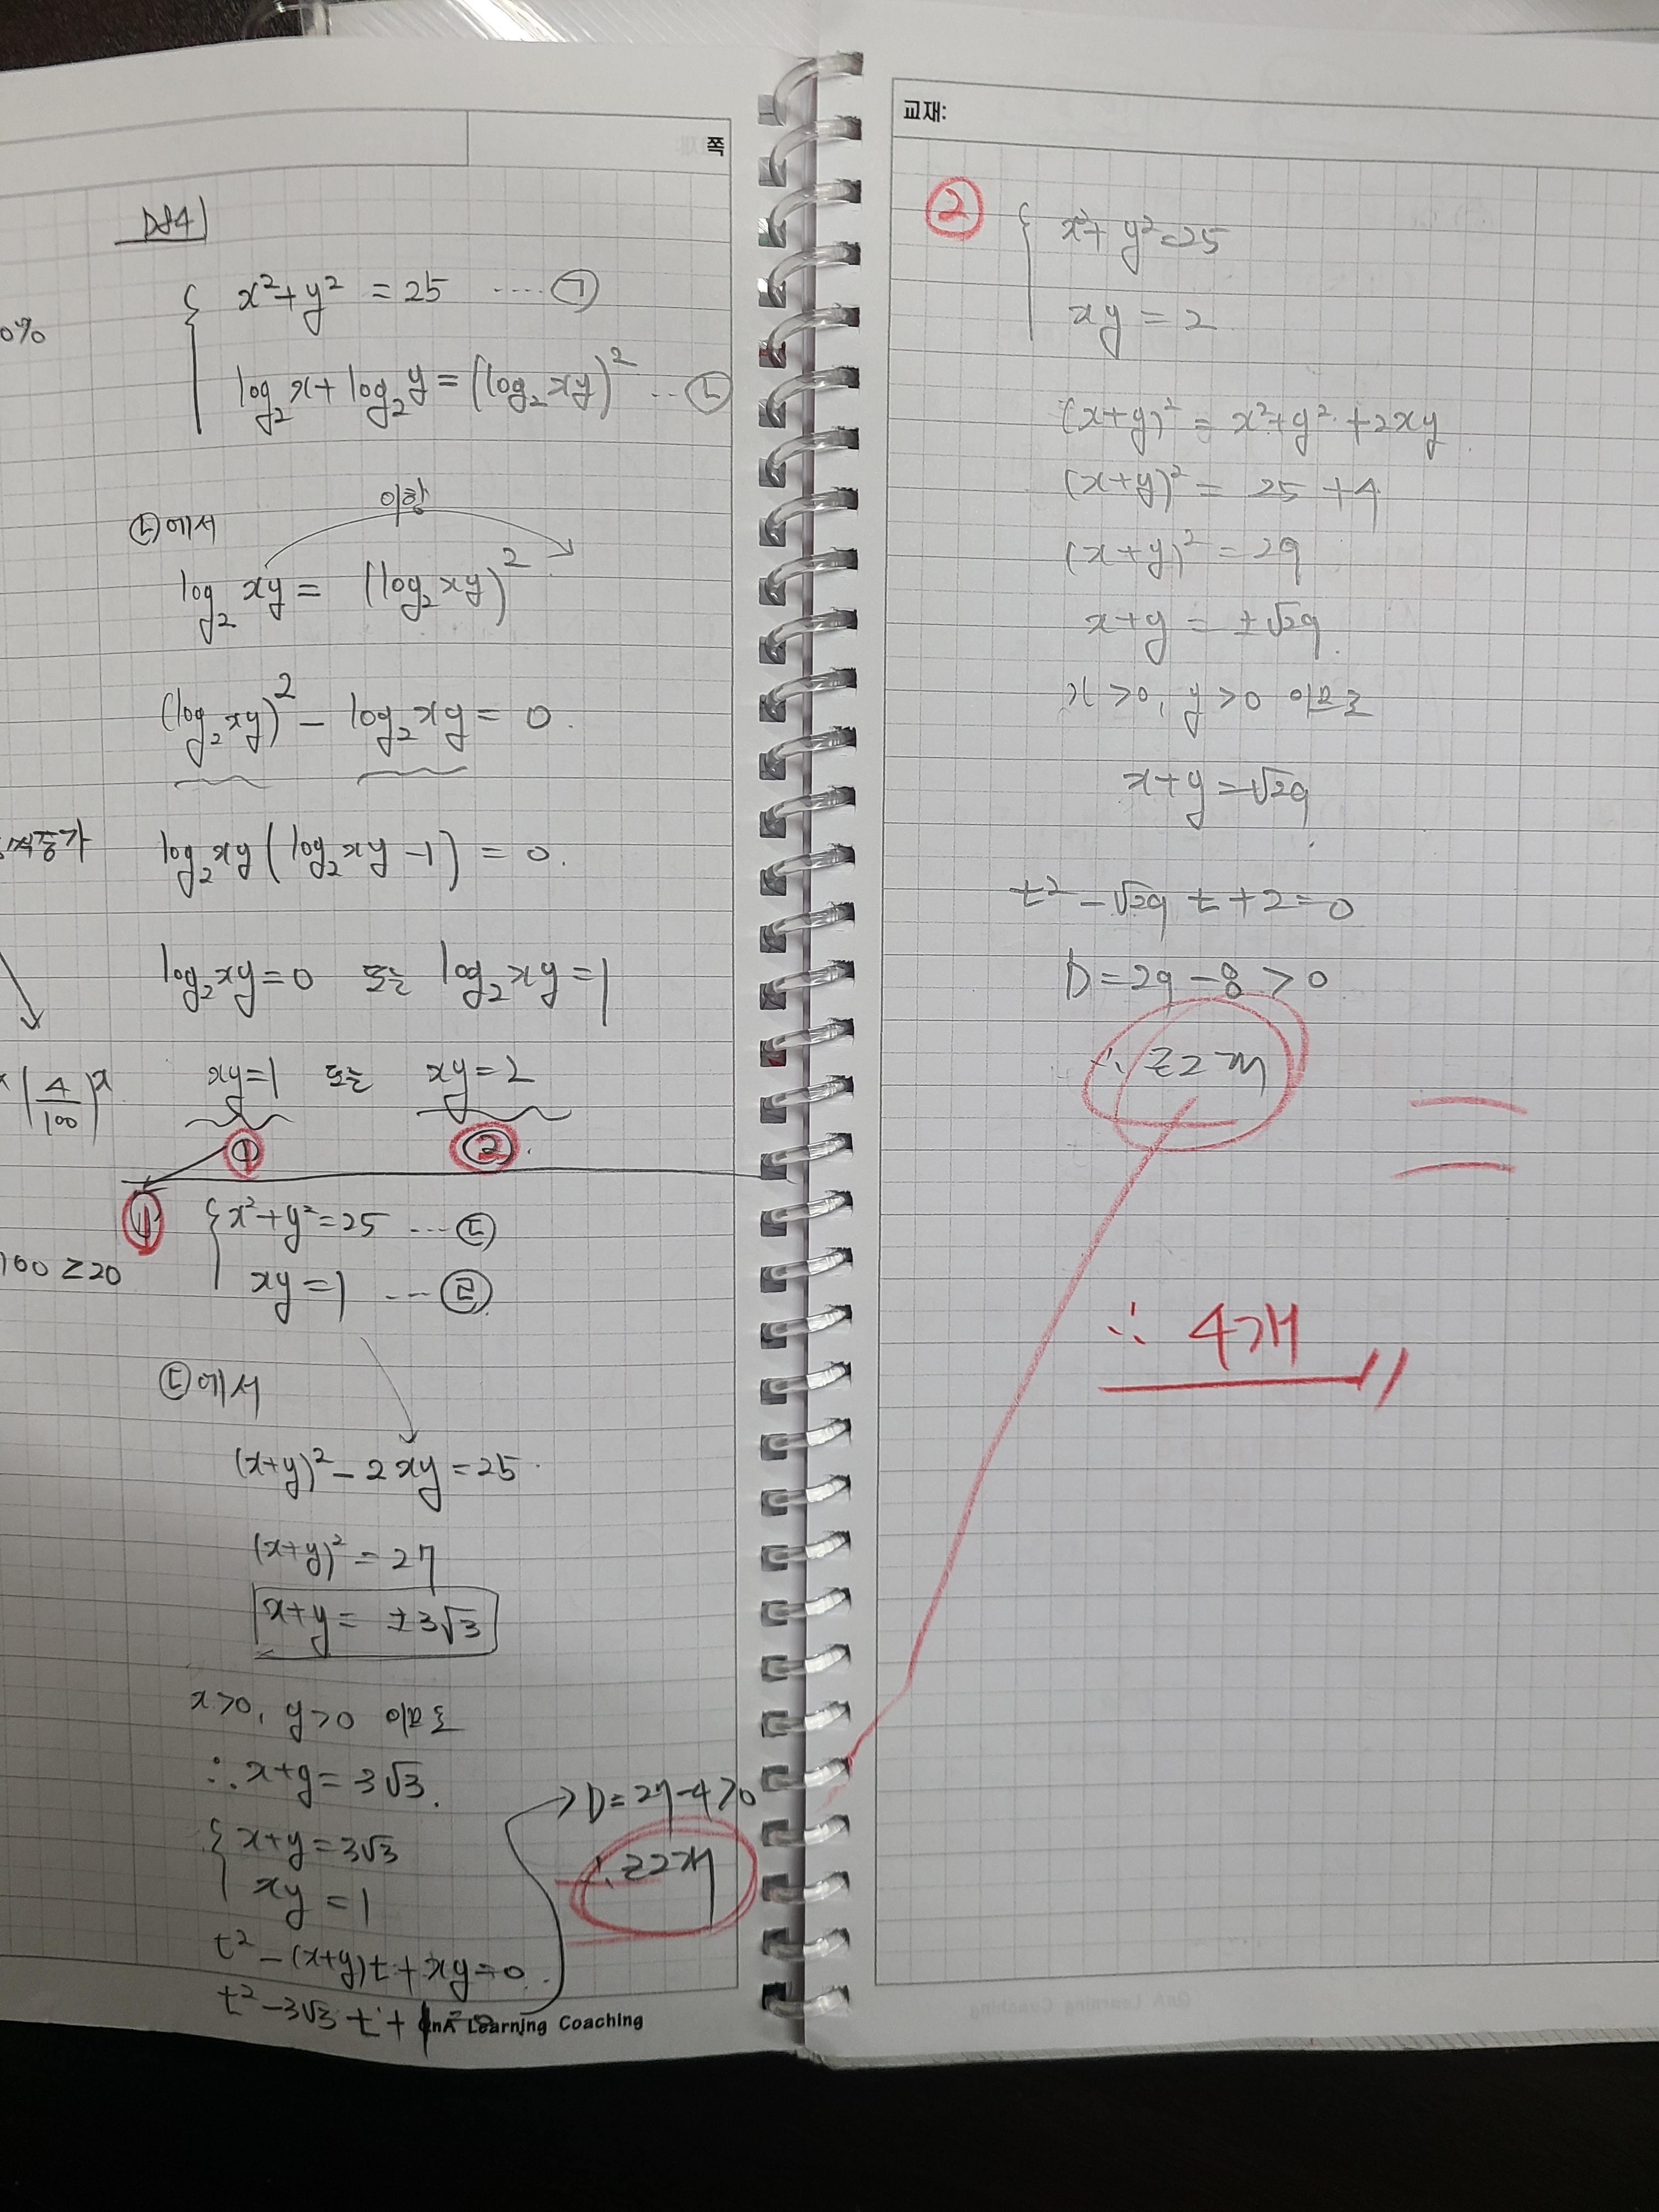 쪽
D84
x²+y² = 25 ···· ㉠
log₂x + log₂y = (log₂xy)² ·· ㉡
이항
㉡에서
log₂xy = (log₂xy)²
(log₂xy)² - log₂xy = 0.
log₂xy(log₂xy - 1) = 0.
log₂xy=0 또는 log₂xy=1
xy=1 또는 xy=2
① ②
① x²+y²=25 ··· ㉢
xy=1 ··· ㉣
㉢에서
(x+y)² - 2xy = 25.
(x+y)² = 27
x+y = ±3√3
x>0, y>0 이므로
∴ x+y = 3√3.
x+y=3√3
xy = 1
t² - (x+y)t + xy = 0.
t² - 3√3 t + 1 = 0
D = 27-4 > 0
∴ 근 2개
QnA Learning Coaching
0%
증가
(4/100)^x
100 ≥ 20
교재:
② x²+y²=25
xy = 2
(x+y)² = x²+y²+2xy
(x+y)² = 25+4
(x+y)² = 29
x+y = ±√29.
x>0, y>0 이므로
x+y=√29
t² - √29 t + 2 = 0
D = 29-8 > 0
∴ 근 2개
∴ 4개